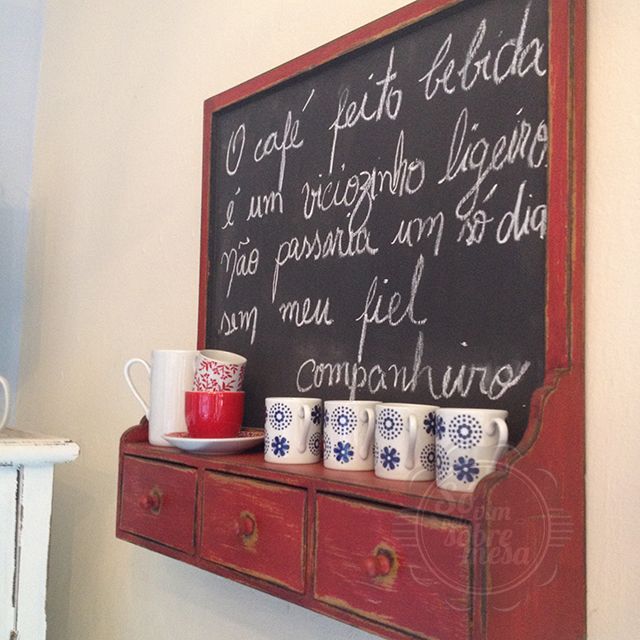 O café feito bebida
é um viciozinho ligeiro
não passaria um só dia
sem meu fiel
companheiro
Só
vim
sobre
mesa